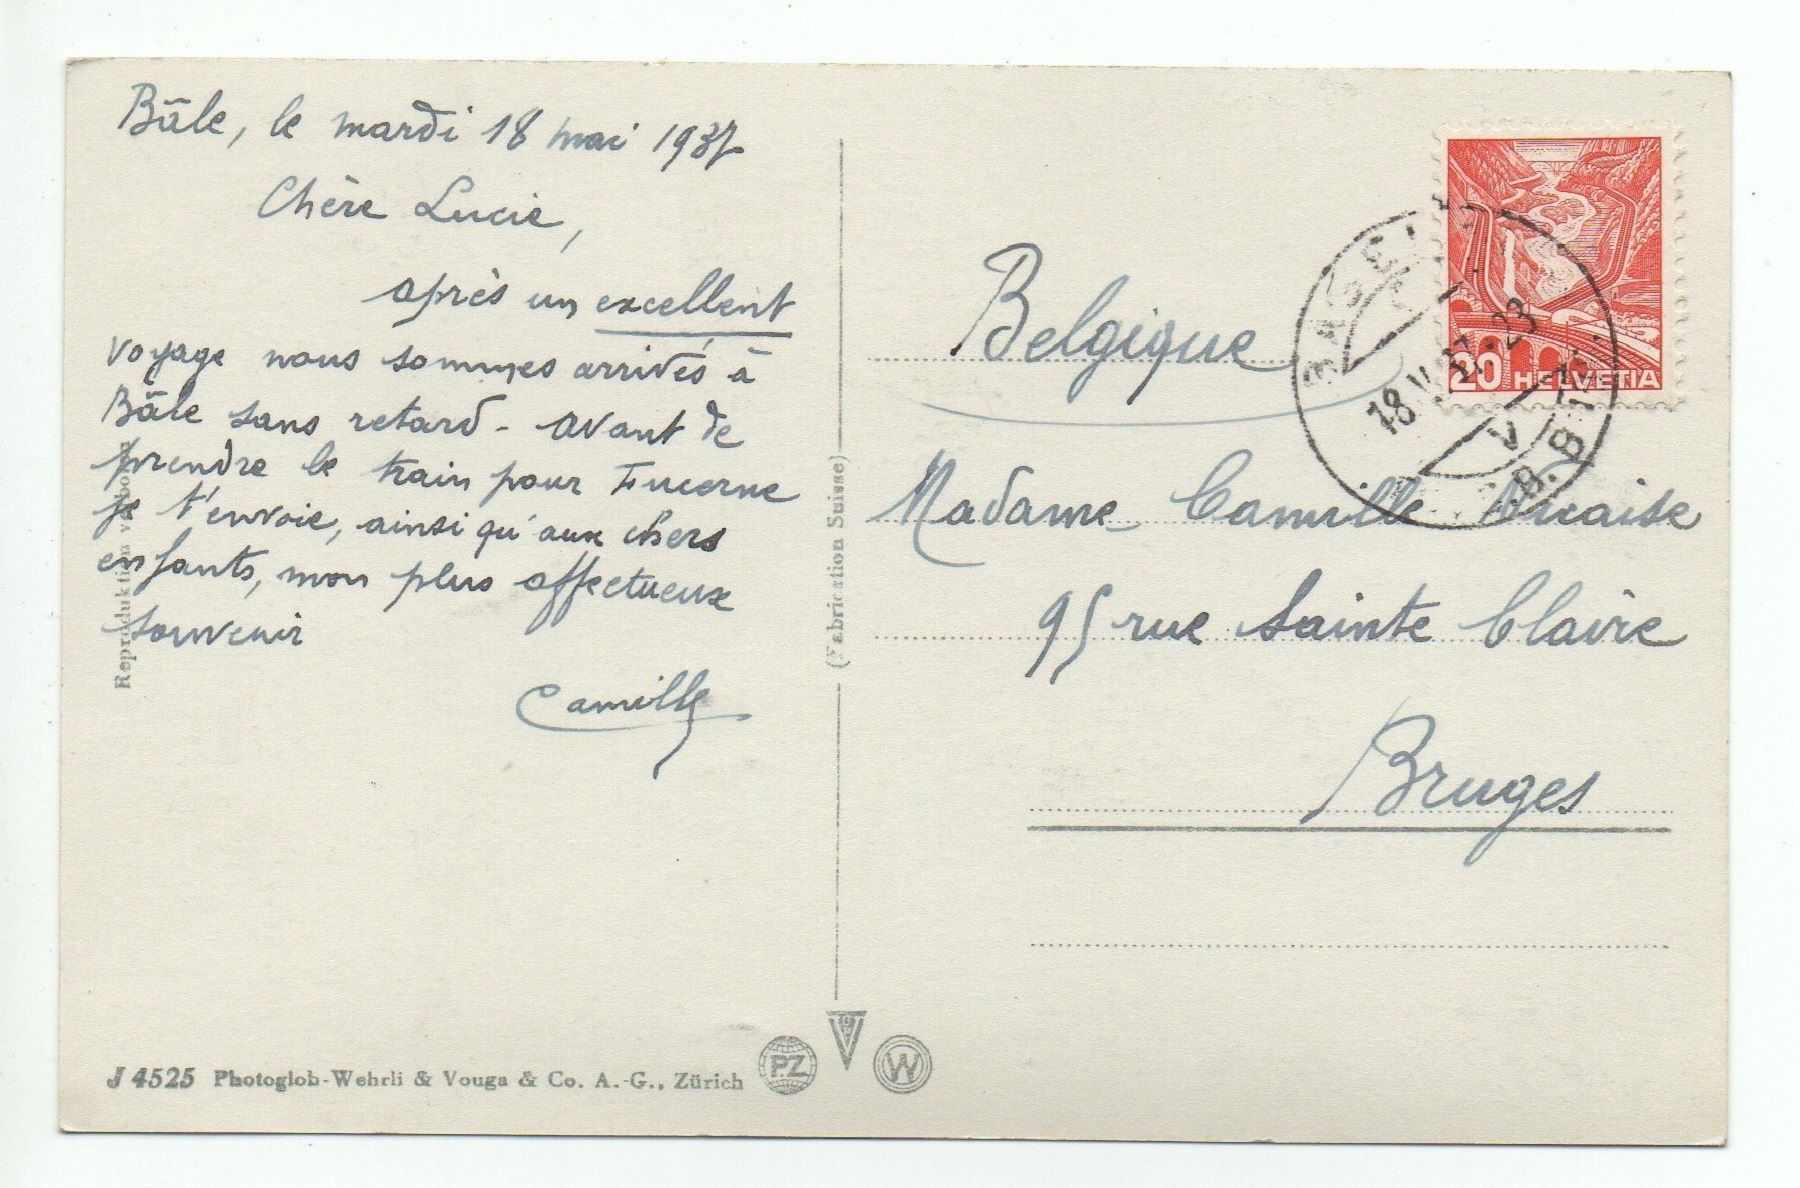 Bâle, le mardi 18 mai 1937
Chère Lucie,
après un excellent
voyage nous sommes arrivés à
Bâle sans retard - avant de
prendre le train pour Lucerne
je t'envoie, ainsi qu'aux chers
enfants, mon plus affectueux
souvenir
Camille
Reproduktion verboten
(Fabrication Suisse)
J 4525 Photoglob-Wehrli & Vouga & Co. A.-G., Zürich
P.Z
V
W
20 HELVETIA
BASEL
18.V.37.23
V
Belgique
Madame Camille Nicaise
95 rue Sainte Claire
Bruges